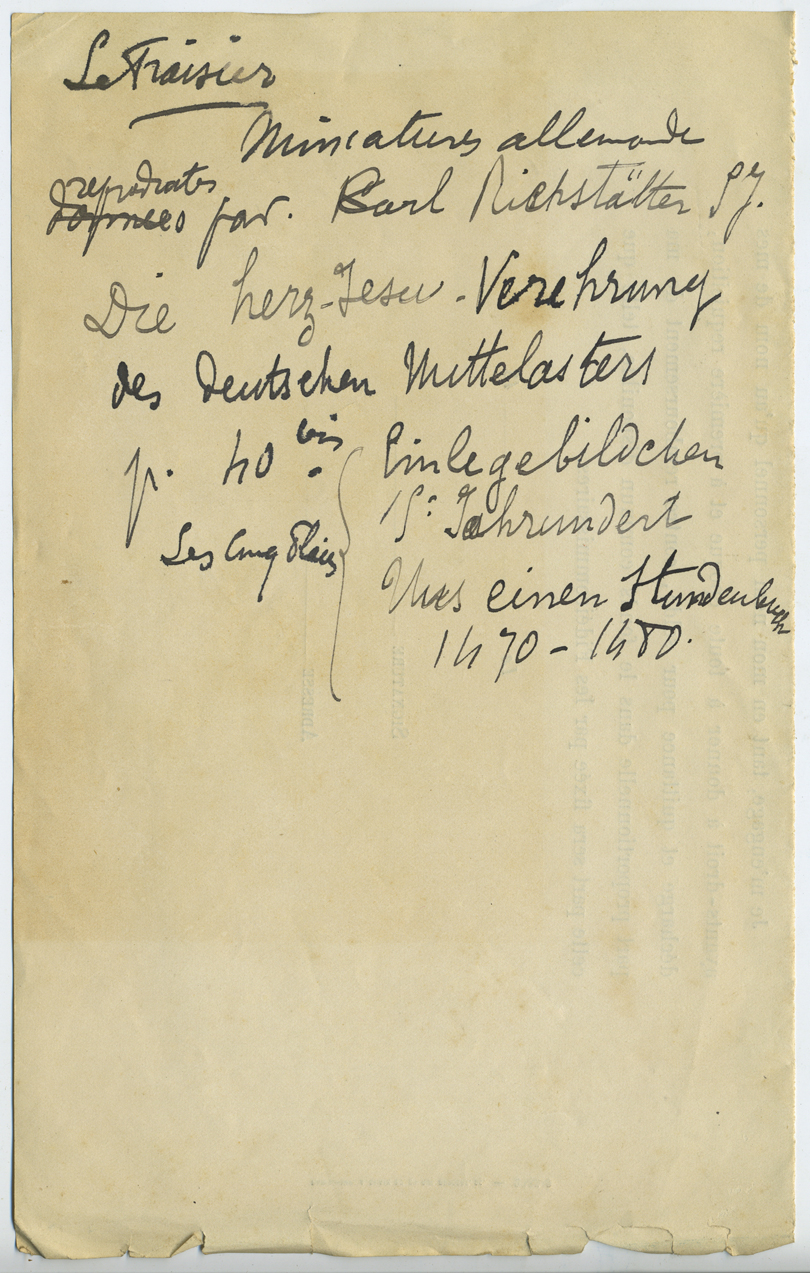 Le Fraisier
Miniatures allemande
reproduites
données par. Karl Richstätter S J.
Die herz-Jesu-Verehrung
des deutschen Mittelasters
p. 40 bis.
Einlegebildchen
15e Jahrundert
Les Cinq Plaies
Aus einen Stundenbuch
1470-1480.